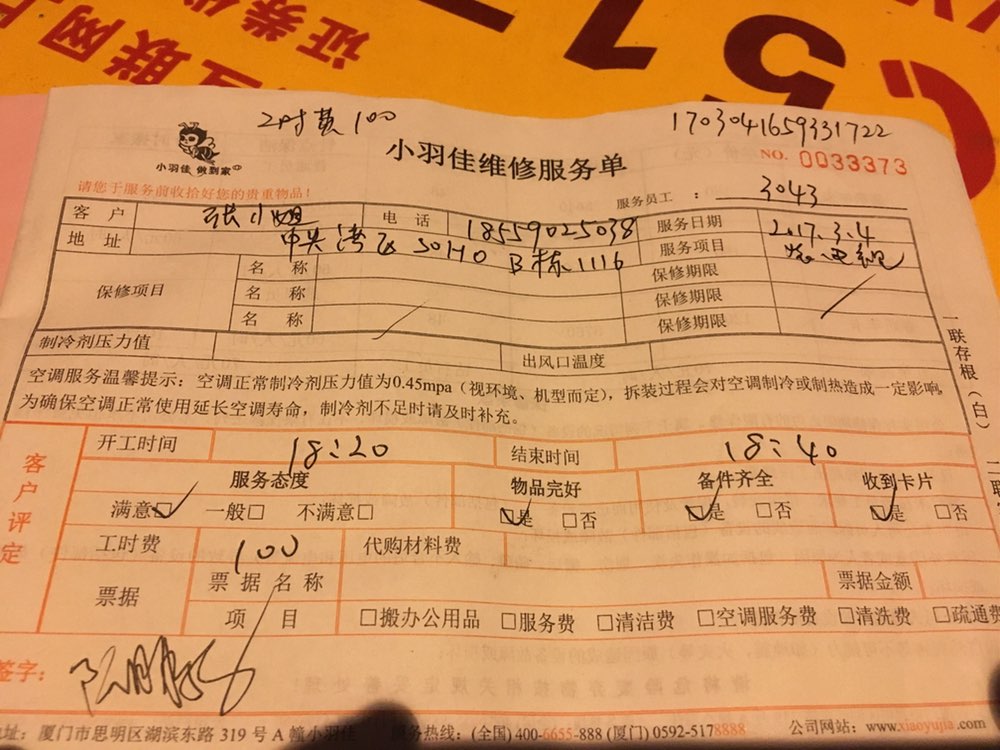 互联网
证券
51
工时费100
1703041659331722
小羽佳 做到家
小羽佳维修服务单
NO. 0033373
请您于服务前收拾好您的贵重物品！
服务员工 ： 3043
客 户 张小姐 电 话 18559025038 服务日期 2017.3.4
地 址 中央湾区SOHO B栋1116 服务项目
保修项目 名 称 保修期限
名 称 保修期限
名 称 保修期限
制冷剂压力值 出风口温度
空调服务温馨提示：空调正常制冷剂压力值为0.45mpa（视环境、机型而定），拆装过程会对空调制冷或制热造成一定影响，
为确保空调正常使用延长空调寿命，制冷剂不足时请及时补充。
一联存根（白）
客户评定
开工时间 18:20 结束时间 18:40
服务态度 物品完好 备件齐全 收到卡片
满意□ 一般□ 不满意□ □是 □否 □是 □否 □是 □否
工时费 100 代购材料费
票据 票 据 名 称 票据金额
项 目 □搬办公用品 □服务费 □清洁费 □空调服务费 □清洗费 □疏通费
签字：
地址：厦门市思明区湖滨东路 319 号 A 幢小羽佳 服务热线：(全国) 400-6655-888 (厦门) 0592-5178888 公司网站：www.xiaoyujia.com